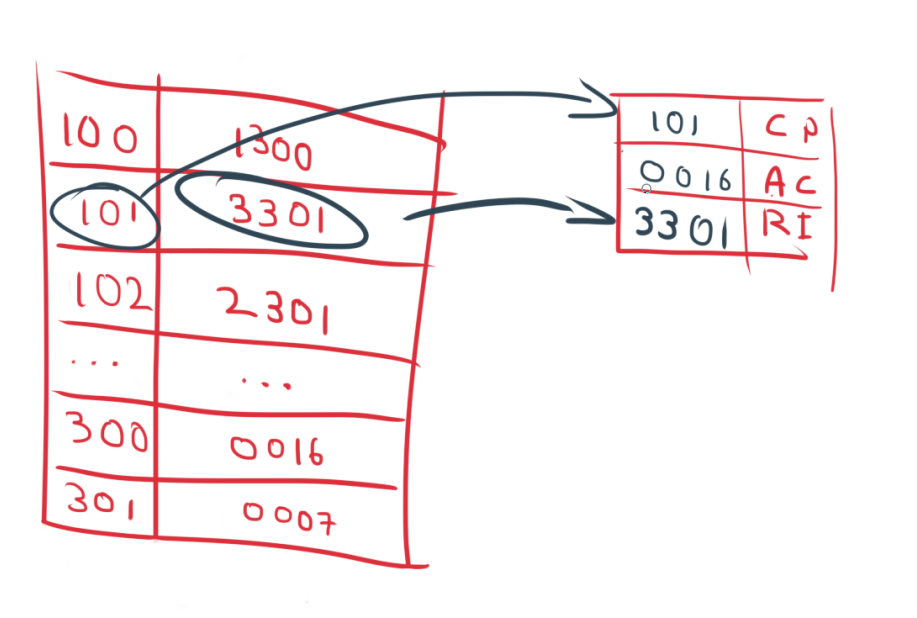 100 1300
101 3301
102 2301
... ...
300 0016
301 0007
101 CP
0016 AC
3301 RI